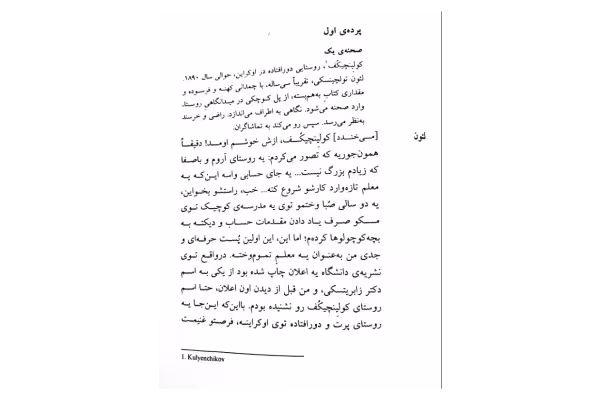 پرده‌ی اول
صحنه‌ی یک
کولینچیکُف¹، روستایی دورافتاده در اوکراین، حوالی سال ۱۸۹۰.
لئون تولچینسکی، تقریباً سی‌ساله، با چمدانی کهنه و فرسوده و
مقداری کتاب به‌هم‌بسته، از پل کوچکی در میدانگاهیِ روستا،
وارد صحنه می‌شود. نگاهی به اطراف می‌اندازد. راضی و خرسند
به‌نظر می‌رسد. سپس رو می‌کند به تماشاگران.
لئون [می‌خندد] کولینچیکُف، ازش خوشم اومد! دقیقاً
همون‌جوریه که تصور می‌کردم: یه روستای آروم و باصفا
که زیادم بزرگ نیست... یه جای حسابی واسه این‌که یه
معلم تازه‌وارد کارشو شروع کنه... خب، راستشو بخواین،
یه دو سالی صُبا وختمو توی یه مدرسه‌ی کوچیک توی
مسکو صرف یاد دادن مقدمات حساب و دیکته به
بچه‌کوچولوها کرده‌م؛ اما این، این اولین پُست حرفه‌ای و
جدی من به‌عنوان یه معلمِ تموم‌وخته. درواقع توی
نشریه‌ی دانشگاه یه اعلان چاپ شده بود از یکی به اسم
دکتر زابریتسکی، و من قبل از دیدن اون اعلان، حتا اسم
روستای کولینچیکُف رو نشنیده بودم. بااین‌که این‌جا یه
روستای پرت و دورافتاده توی اوکراینه، فرصتو غنیمت
1. Kulyenchikov